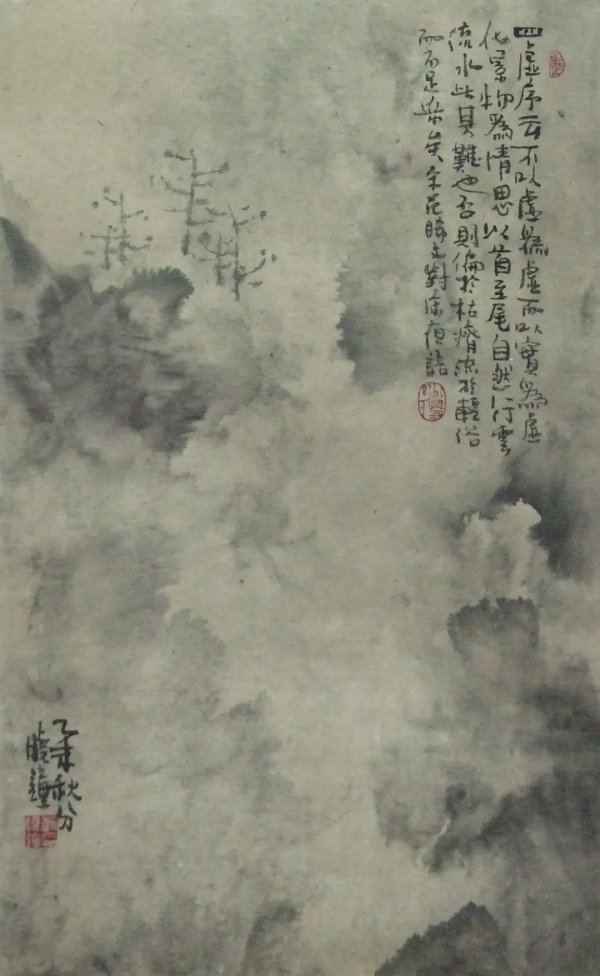 四虛序云不以虛為虛而以實為虛
化景物為情思從首至尾自然行雲
流水此其難也否則偏於枯瘠流於輕俗
而不足采矣宋范晞文對床夜語
乙未秋分
曉